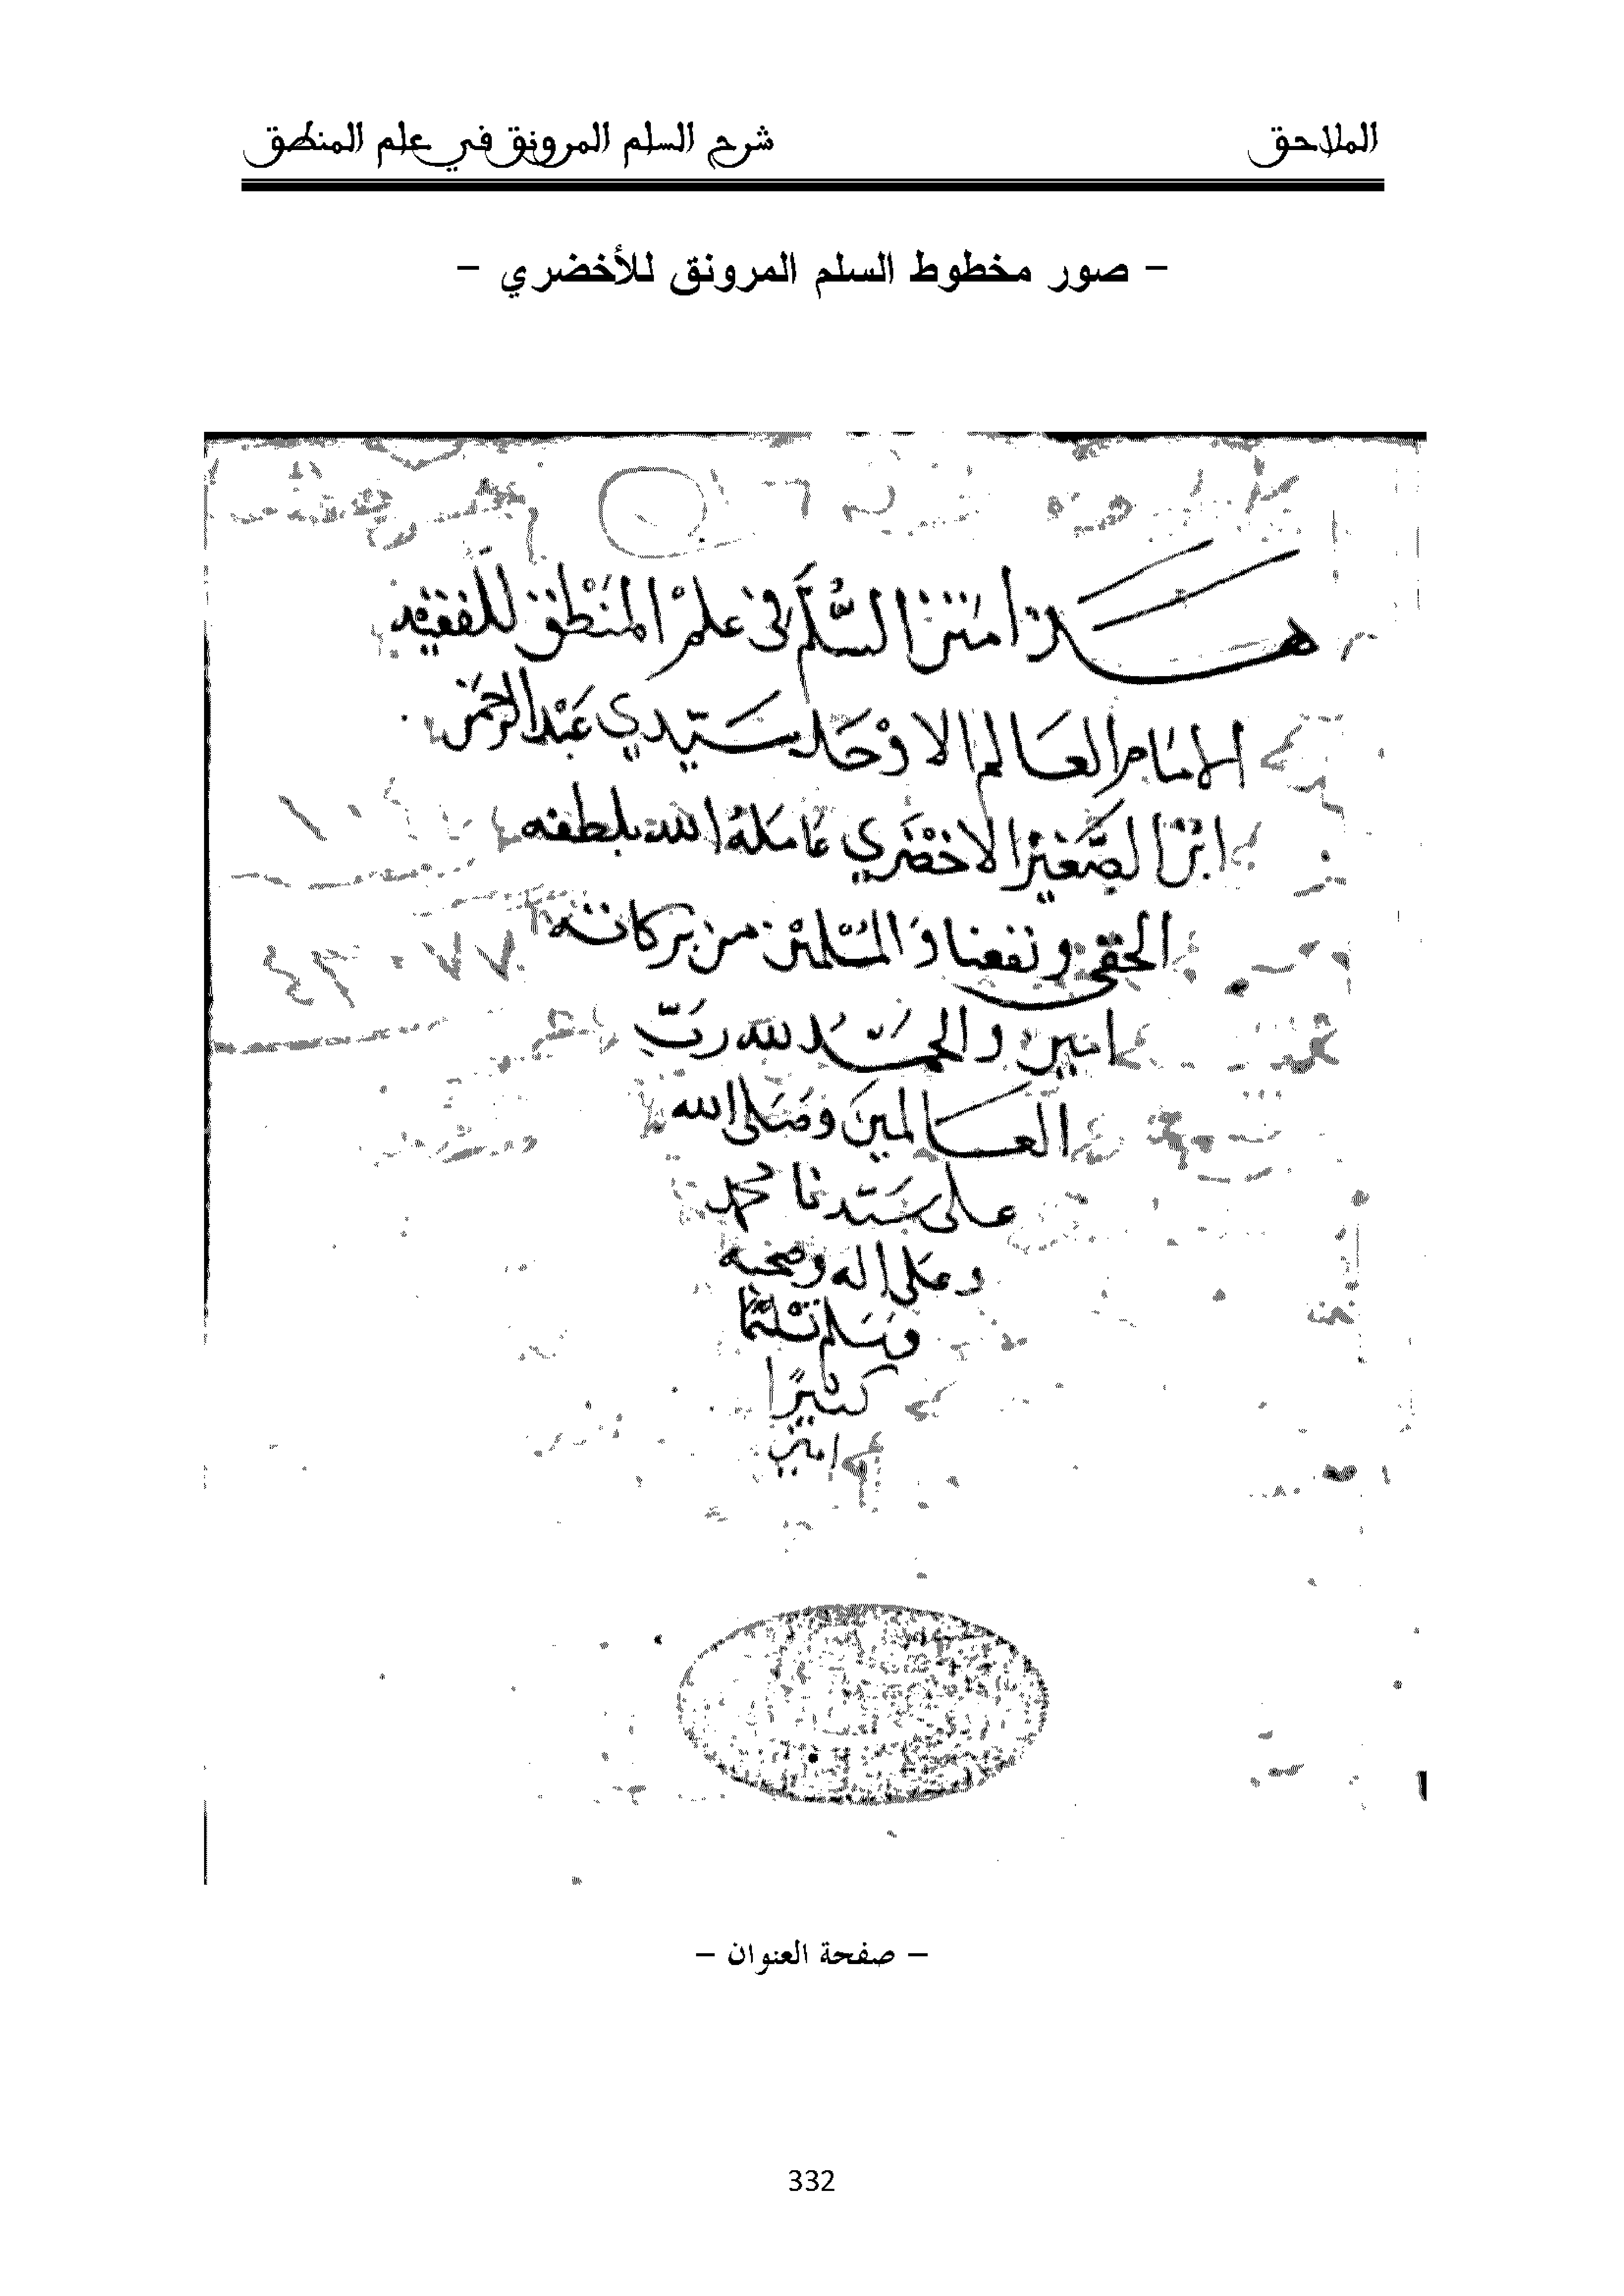 الملاحق
شرح السلم المرونق في علم المنطق
- صور مخطوط السلم المرونق للأخضري -
هــذا متن السُّلَّم في علم المنْطَق للفقيه
الامام العَالم الاوْحَد سَيّدي عَبْد الرحمَن
ابْن الصَّغيْر الاخْضَري عَامَلهُ الله بلطفه
الحقي ونفعنا وَالمسْلميْن من بركاته
امين والحمَد لله ربّ
العَالمينَ وصَلى الله
على سَيّدنا محمد
وعَلى اله وصحبه
وَسَلم تَسْليْمًا
كثيرًا
امين
- صفحة العنوان -
332